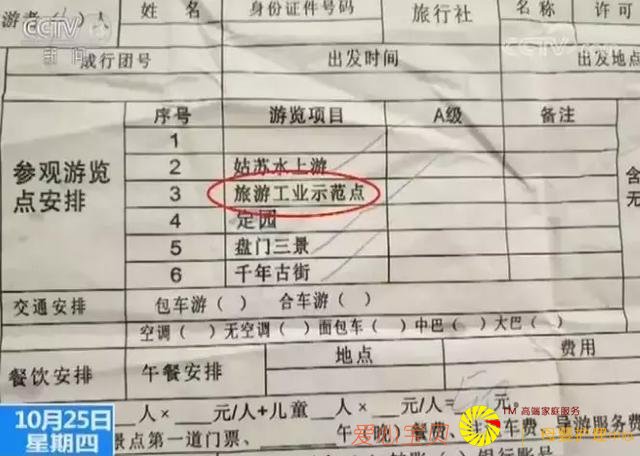 游者( )人 姓名 身份证件号码 旅行社 名称 许可
CCTV 新闻 CCTV
成行团号 出发时间 出发地点
序号 游览项目 A级 备注
1
2 姑苏水上游
参观游览点安排 3 旅游工业示范点
4 定园
5 盘门三景
6 千年古街
含 无
交通安排 包车游( ) 合车游( )
空调( )无空调( )面包车( )中巴( )大巴( )
地点 费用
餐饮安排 午餐安排
人× 元/人+儿童 人× = 元。
10月25日 景点第一道门票、 午(晚)餐费、 车费、导游服务费
星期四
TM 高端家庭服务